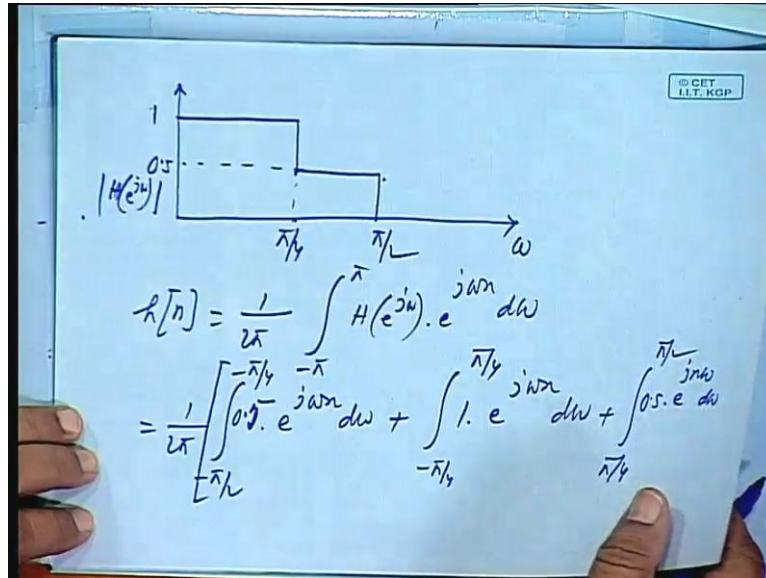 © CET
I.I.T. KGP
1
0.5
|H(e^{jω})|
π/4
π/2
ω
h[n] = 1/2π ∫_{-π}^{π} H(e^{jω}) . e^{jωn} dω
= 1/2π [ ∫_{-π/2}^{-π/4} 0.5 . e^{jωn} dω + ∫_{-π/4}^{π/4} 1 . e^{jωn} dω + ∫_{π/4}^{π/2} 0.5 . e^{jnω} dω